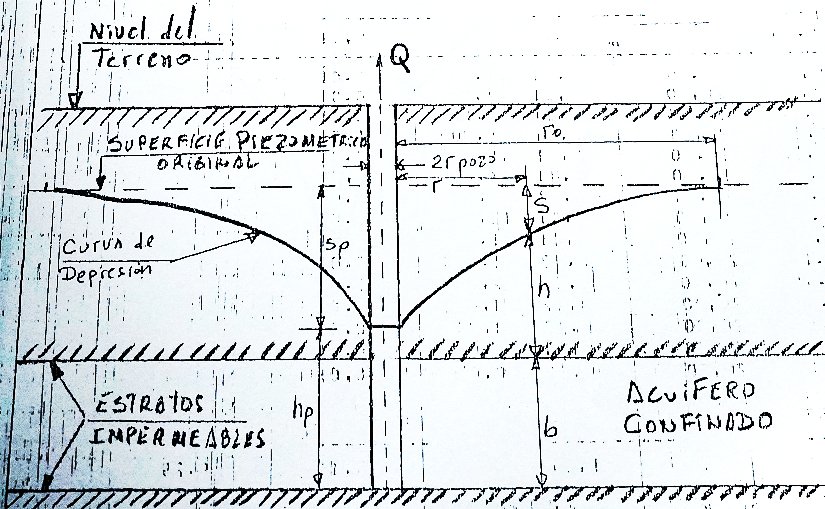 Nivel del
Terreno
Q
SUPERFICIE PIEZOMETRICA
ORIGINAL
ro
2rpozo
r
S
Curva de
Depresión
sp
h
ESTRATOS
IMPERMEABLES
hp
b
ACUIFERO
CONFINADO